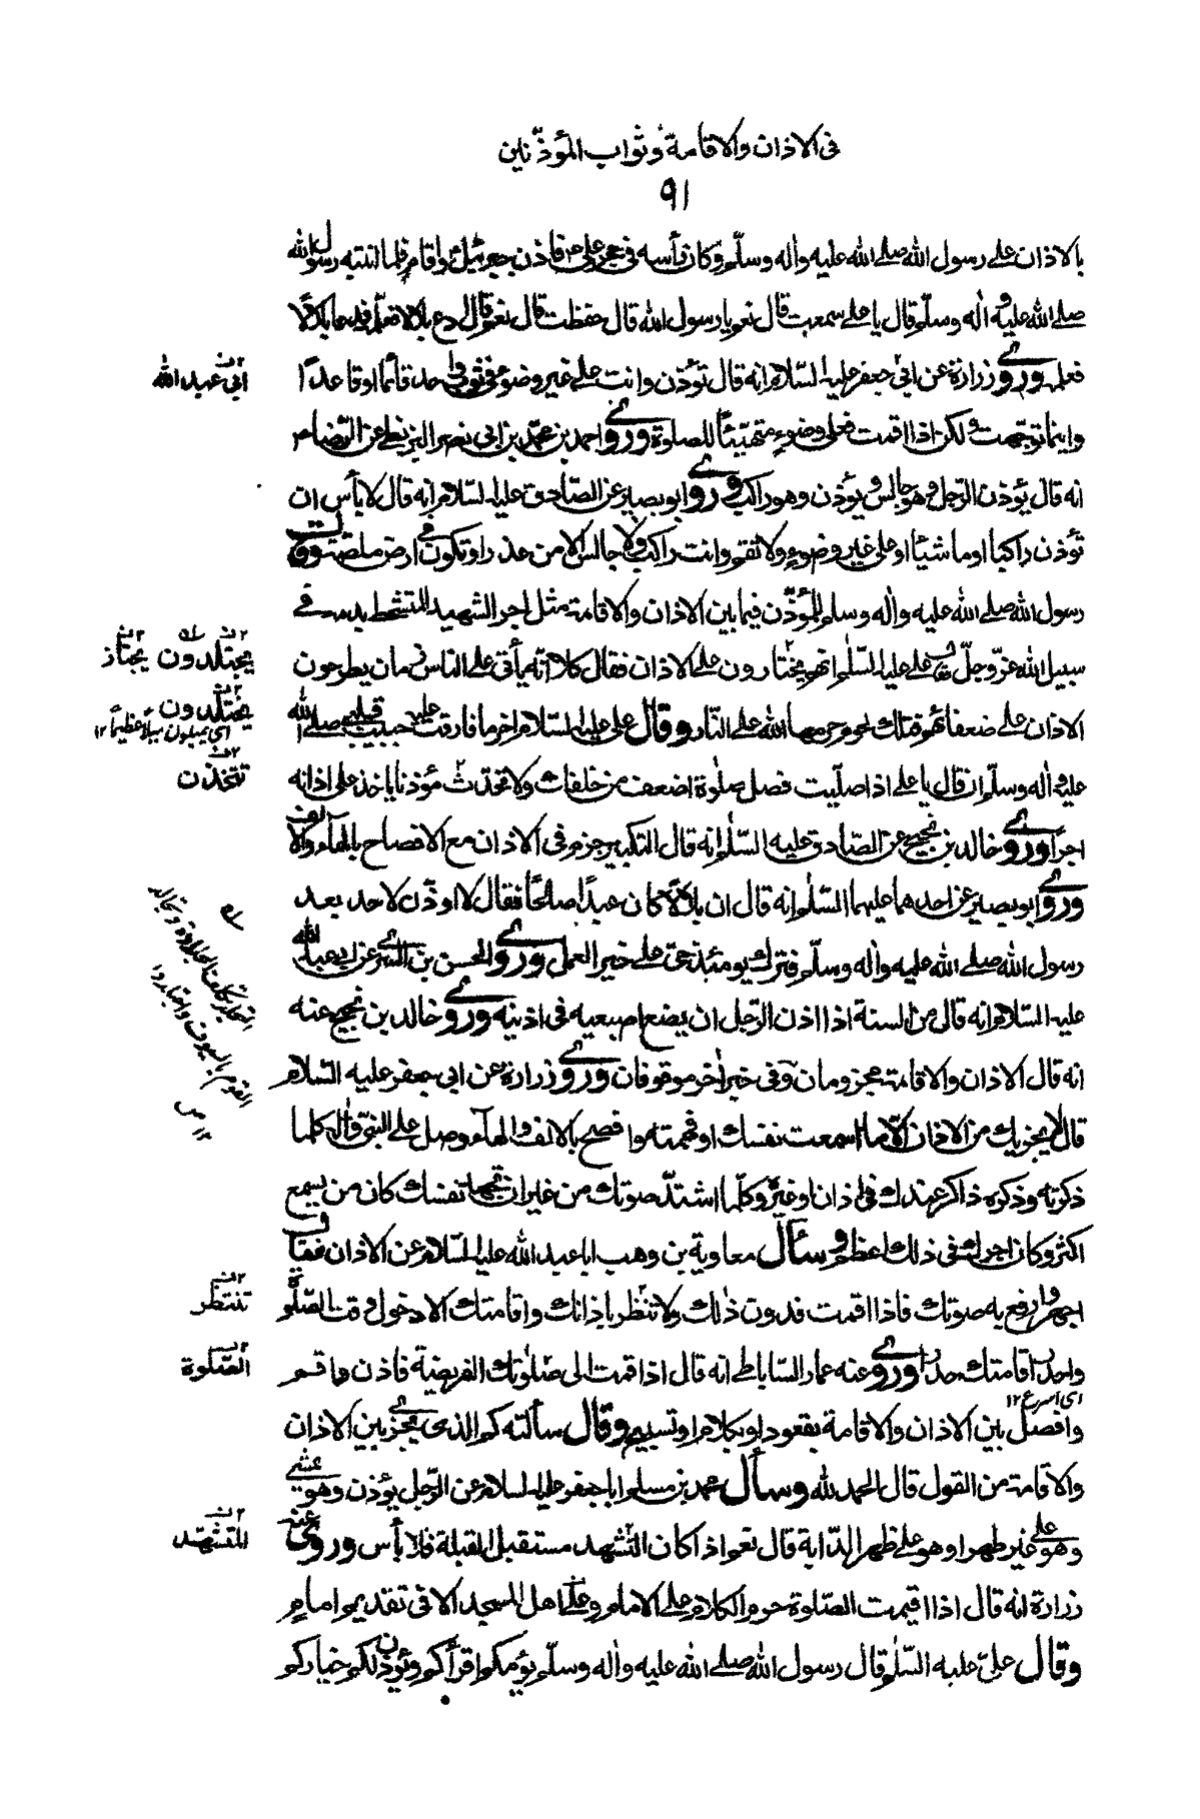 فى الاذان والاقامة وثواب المؤذنين
٩١
بالاذان على رسول الله صلى الله عليه واله وسلم وكان رأسه فى حجر على ع فاذن جبرئيل واقام فلما انتبه رسول الله
صلى الله عليه واله وسلم قال يا على سمعت قال نعم يا رسول الله قال حفظت قال نعم قال ادع بلالا فعلمه فدعا بلالا
فعلمه وروى زرارة عن ابى جعفر عليه السلام انه قال تؤذن وانت على غير وضوء فى ثوب واحد قائما او قاعدا
واينما توجهت ولكن اذا اقمت فعلى وضوء متهيئا للصلوة وروى احمد بن محمد بن ابى نصر البزنطى عن الرضا م
انه قال يؤذن الرجل وهو جالس ويؤذن وهو راكب وروى ابو بصير عن الصادق عليه السلام انه قال لا بأس ان
تؤذن راكبا او ماشيا او على غير وضوء ولا تقم وانت راكب ولا جالس الا من عذر او تكون فى ارض ملصة وقال
رسول الله صلى الله عليه واله وسلم للمؤذن فيما بين الاذان والاقامة مثل اجر الشهيد المتشحط بدمه فى
سبيل الله عز وجل فقال على عليه السلم انهم يختارون على الاذان فقال كلا انه يأتى على الناس زمان يطرحون
الاذان على ضعفائهم فتلك لحوم حرمها الله على النار وقال على عليه السلام اخر ما فارقت عليه حبيب قلبى صلى الله
عليه واله وسلم ان قال يا على اذا صليت فصل صلوة اضعف من خلفك ولا تتخذن مؤذنا ياخذ على اذانه
اجرا وروى خالد بن نجيح عن الصادق عليه السلم انه قال التكبير جزم فى الاذان مع الافصاح بالهاء والالف
وروى ابو بصير عن احدهما عليهما السلم انه قال ان بلالا كان عبدا صالحا فقال لا اوذن لاحد بعد
رسول الله صلى الله عليه واله وسلم فترك يومئذ حى على خير العمل وروى الحسن بن السرى عن ابى عبد الله
عليه السلام انه قال من السنة اذا اذن الرجل ان يضع اصبعيه فى اذنيه وروى خالد بن نجيح عنه
انه قال الاذان والاقامة مجزومان وفى خبر اخر موقوفان وروى زرارة عن ابى جعفر عليه السلام
قال لا يجزيك من الاذان الا ما اسمعت نفسك او فهمته وافصح بالالف والهاء وصل على النبى واله كلما
ذكرته وذكره ذاكر عندك فى اذان او غيره وكلما اشتد صوتك من غير ان تجهد نفسك كان من يسمع
اكثر وكان اجرك فى ذلك اعظم وسأل معاوية بن وهب ابا عبد الله عليه السلام عن الاذان فقال
اجهر وارفع به صوتك فاذا اقمت فدون ذلك ولا تنتظر باذانك واقامتك الا دخول وقت الصلوة
واحدر اقامتك حدرا وروى عنه عمار الساباطى انه قال اذا قمت الى صلوتك الفريضة فاذن واقم
اى اسرع ١٢
وافصل بين الاذان والاقامة بقعود او بكلام او تسبيح وقال سألته كم الذى يجزى بين الاذان
والاقامة من القول قال الحمد لله وسأل محمد بن مسلم ابا جعفر عليه السلام عن الرجل يؤذن وهو يمشى
وهو على غير طهر او هو على ظهر الدابة قال نعم اذا كان التشهد مستقبل القبلة فلا بأس وروى عنه
زرارة انه قال اذا اقيمت الصلوة حرم الكلام على الامام وعلى اهل المسجد الا فى تقديم امام
وقال على عليه السلم قال رسول الله صلى الله عليه واله وسلم يؤمكم اقرأكم ويؤذن لكم خياركم
ابى عبد الله
يجتلدون يجتاز
يختلدون
اى يميلون ميلا عظيما ١٢
تتخذن
تنتظر
الصلوة
المتشهد